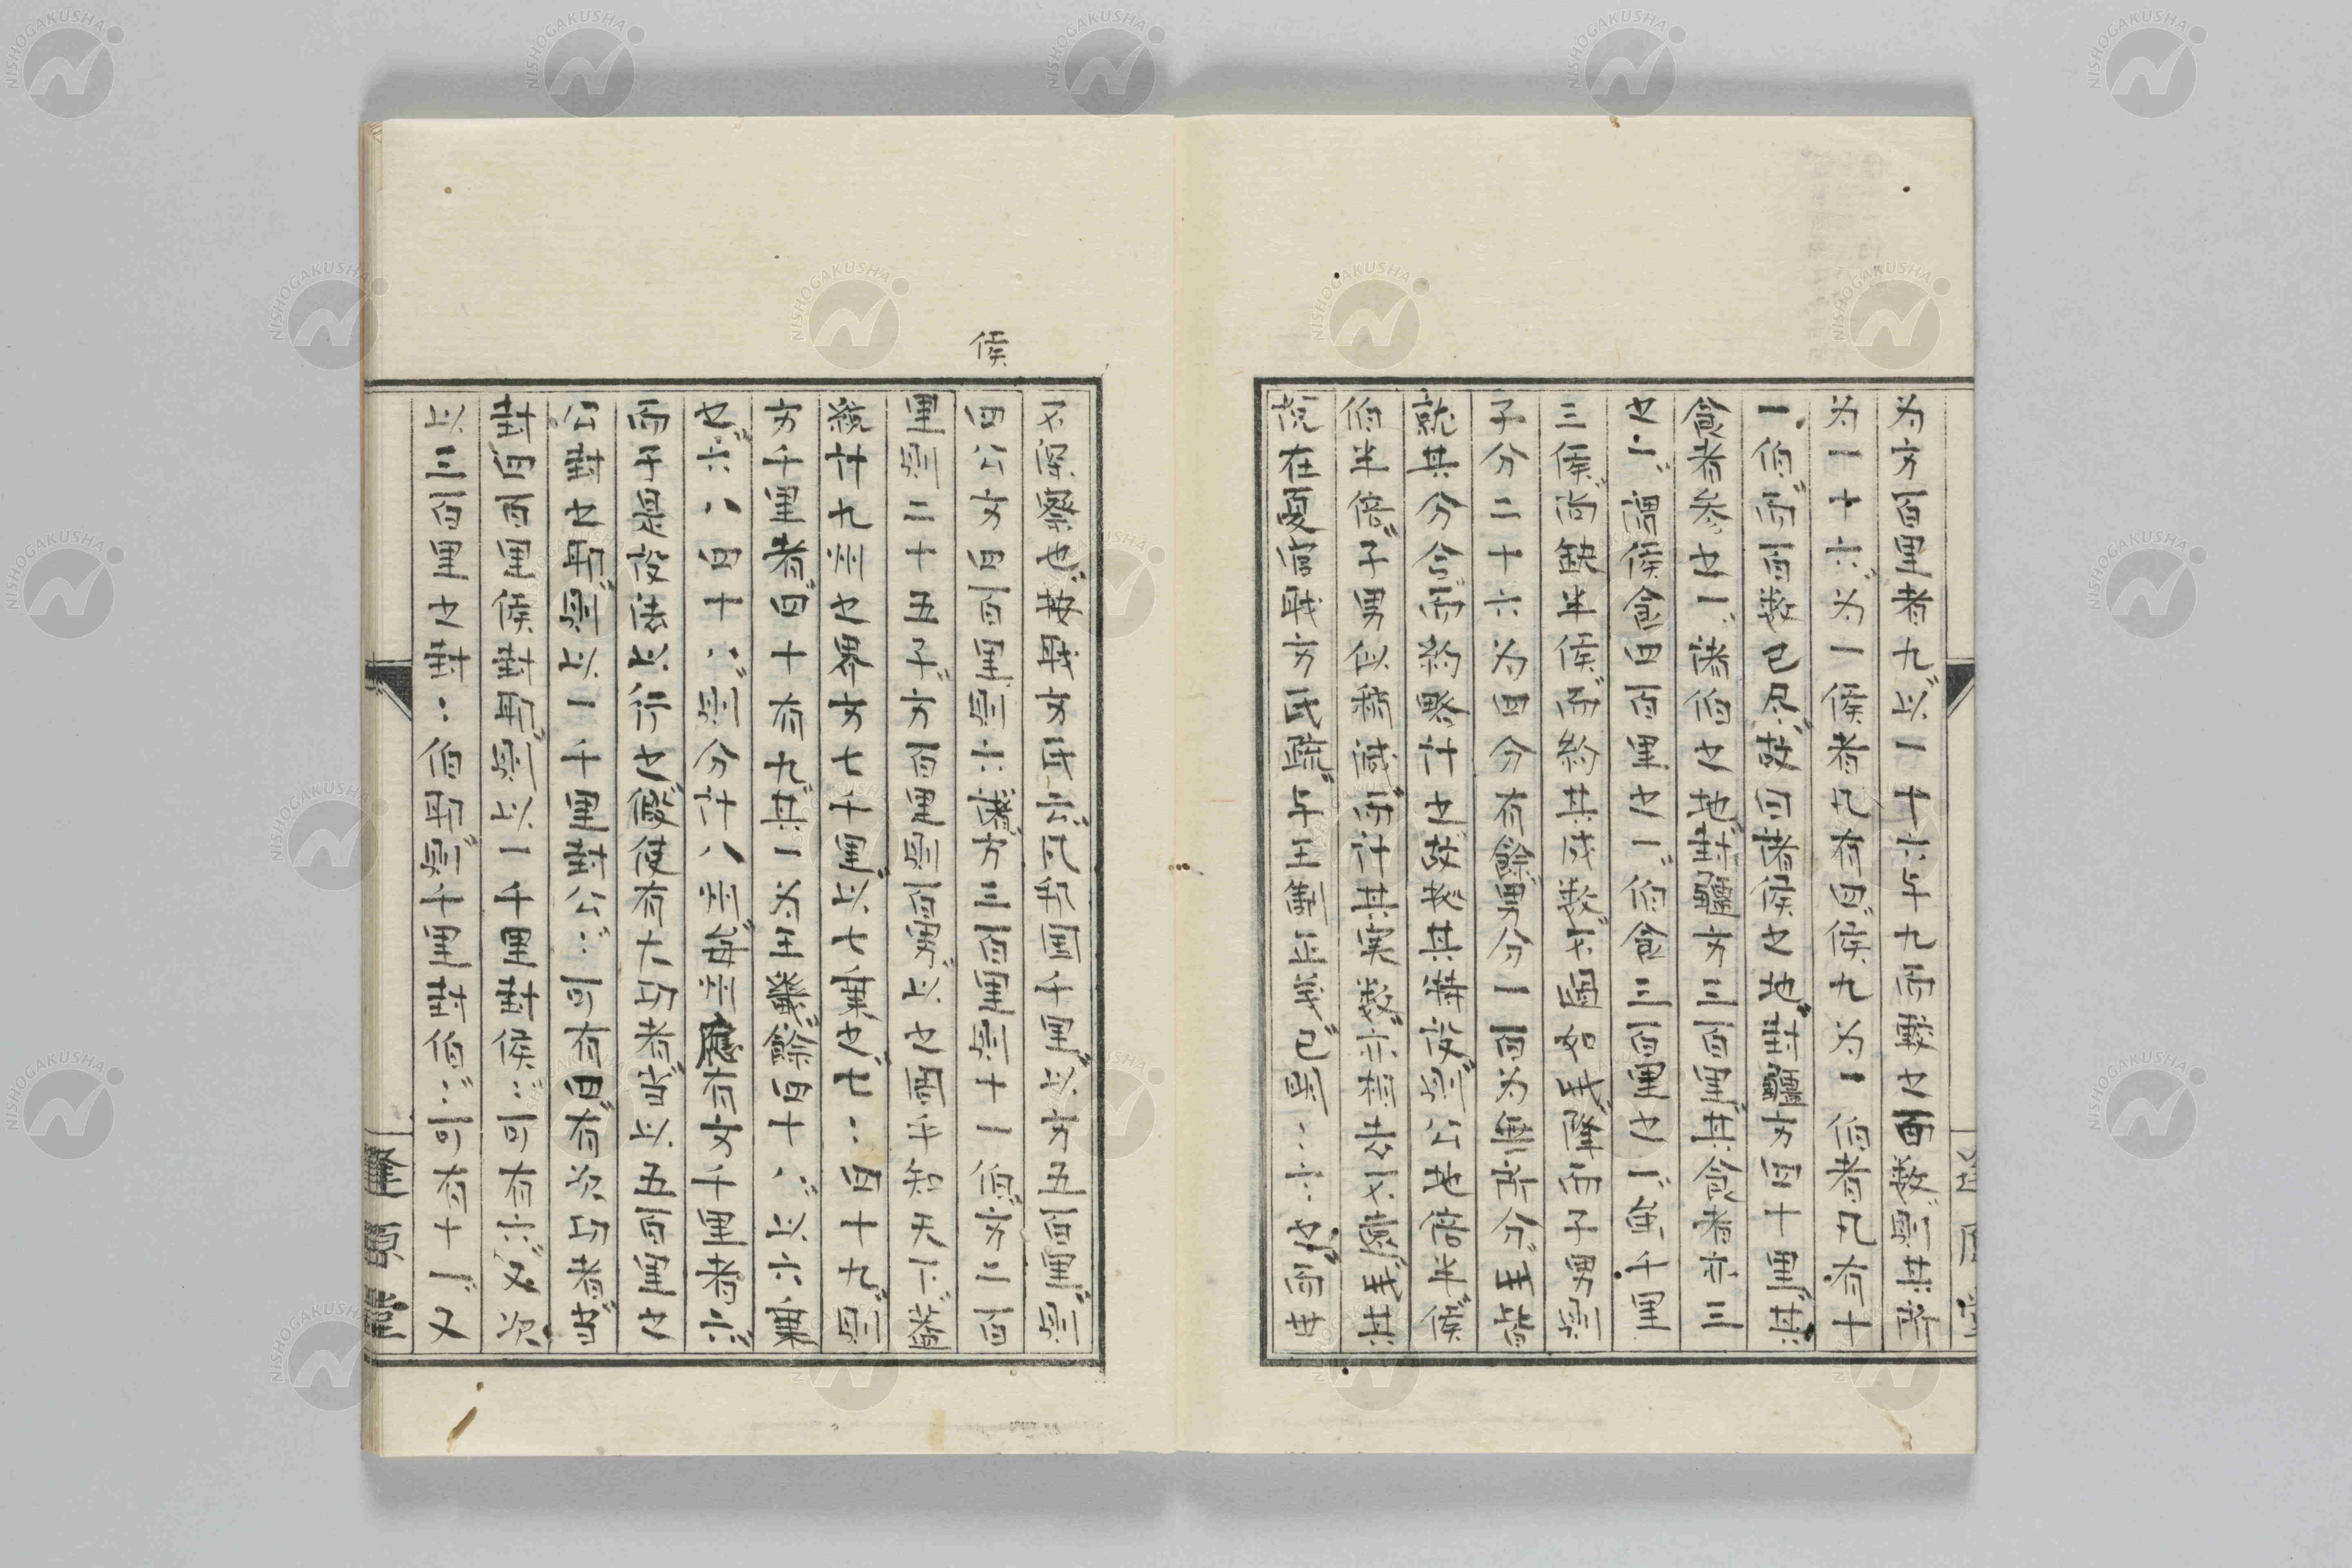 为方百里者九以一十六与九而數之面数則其所
为一十六为一侯者凡有四侯九为一伯者凡有十
一伯而百数已尽故曰諸侯之地封疆方四十里其
食者参之一諸伯之地封疆方三百里其食者亦三
之一謂侯食四百里之一伯食三百里之一每千里
三侯尚缺半侯而約其成数不過如此降而子男則
子分二十六为四分有餘男分一百为無所分此皆
就其分合而約畧計之故然其辨没則公地倍半侯
伯半倍子男似稍減而计其実数亦相去不遠此其
説在夏官職方氏疏与王制正義已明：亦也而世
不深察也按職方氏云凡邦国千里以方五百里則
四公方四百里則六諸方三百里則十一伯方二百
里則二十五子方百里則百男以之周千知天下蓋
統计九州之界方七千里以七乗之七：四十九則
方千里者四十有九其一为王畿餘四十八以六乗
之六八四十八則分计八州每州應有方千里者六
而于是設法以行之假使有大功者当以五百里之
公封之耶則以一千里封公：可有四有次功者当
封四百里侯封耶則以一千里封侯：可有六又次
以三百里之封：伯耶則千里封伯：可有十一又
侯